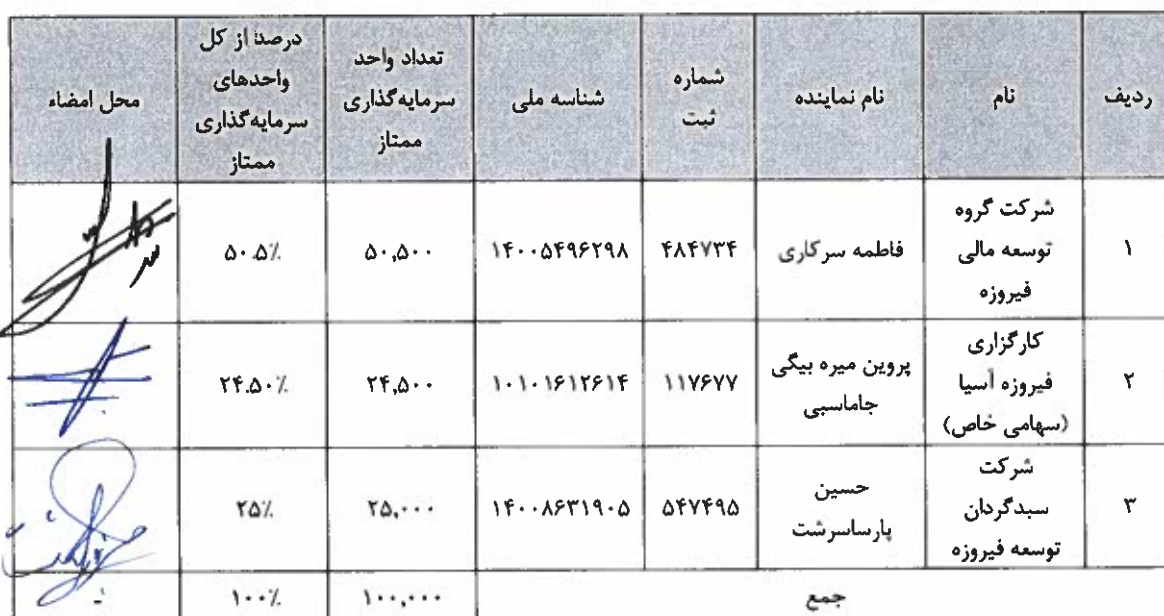 ردیف
نام
نام نماینده
شماره
ثبت
شناسه ملی
تعداد واحد
سرمایه‌گذاری
ممتاز
درصد از کل
واحدهای
سرمایه‌گذاری
ممتاز
محل امضاء
۱
شرکت گروه
توسعه مالی
فیروزه
فاطمه سرکاری
۴۸۴۷۳۴
۱۴۰۰۵۴۹۶۲۹۸
۵۰,۵۰۰
۵۰.۵٪
۲
کارگزاری
فیروزه آسیا
(سهامی خاص)
پروین میره بیگی
جاماسبی
۱۱۷۶۷۷
۱۰۱۰۱۶۱۲۶۱۴
۲۴,۵۰۰
۲۴.۵۰٪
۳
شرکت
سبدگردان
توسعه فیروزه
حسین
پارساسرشت
۵۴۷۴۹۵
۱۴۰۰۸۶۳۱۹۰۵
۲۵,۰۰۰
۲۵٪
جمع
۱۰۰,۰۰۰
۱۰۰٪